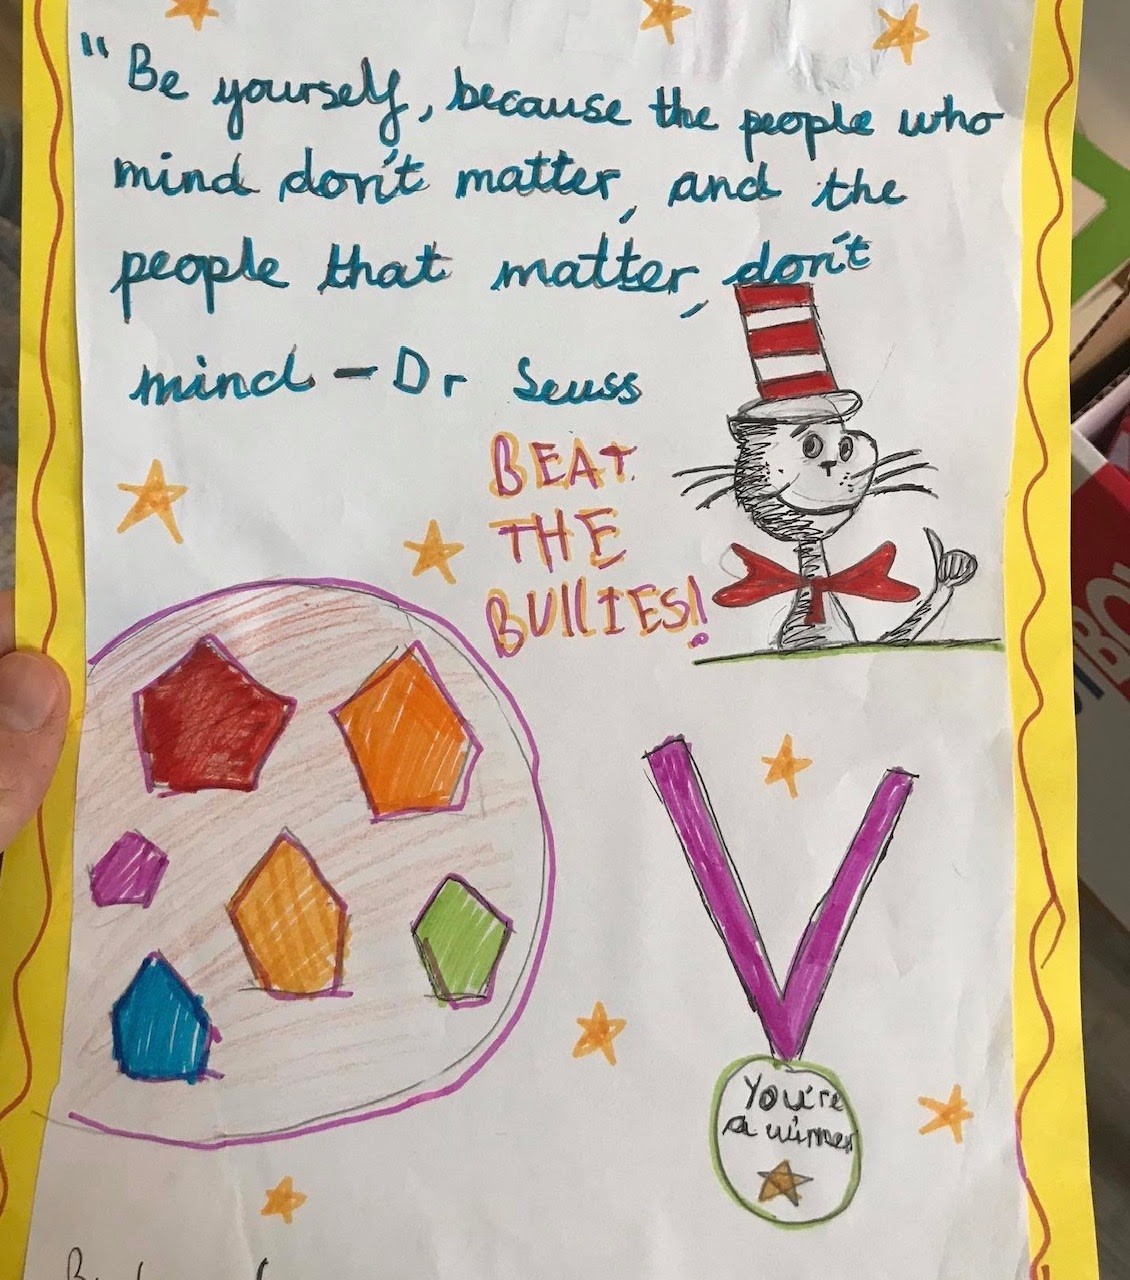 "Be yourself, because the people who
mind don't matter, and the
people that matter, don't
mind – Dr Seuss
BEAT
THE
BULLIES!
You're
a winner